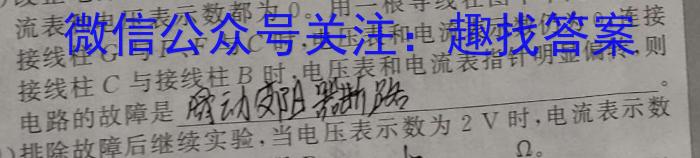 流表和电压表示数都为0。用一根导线在图
微信公众号关注：趣找答案
接线柱G与 连接
接线柱C与接线柱B时,电压表和电流表指针明显偏转,则
电路的故障是滑动变阻器断路。
排除故障后继续实验,当电压表示数为2V时,电流表示数
Ω。